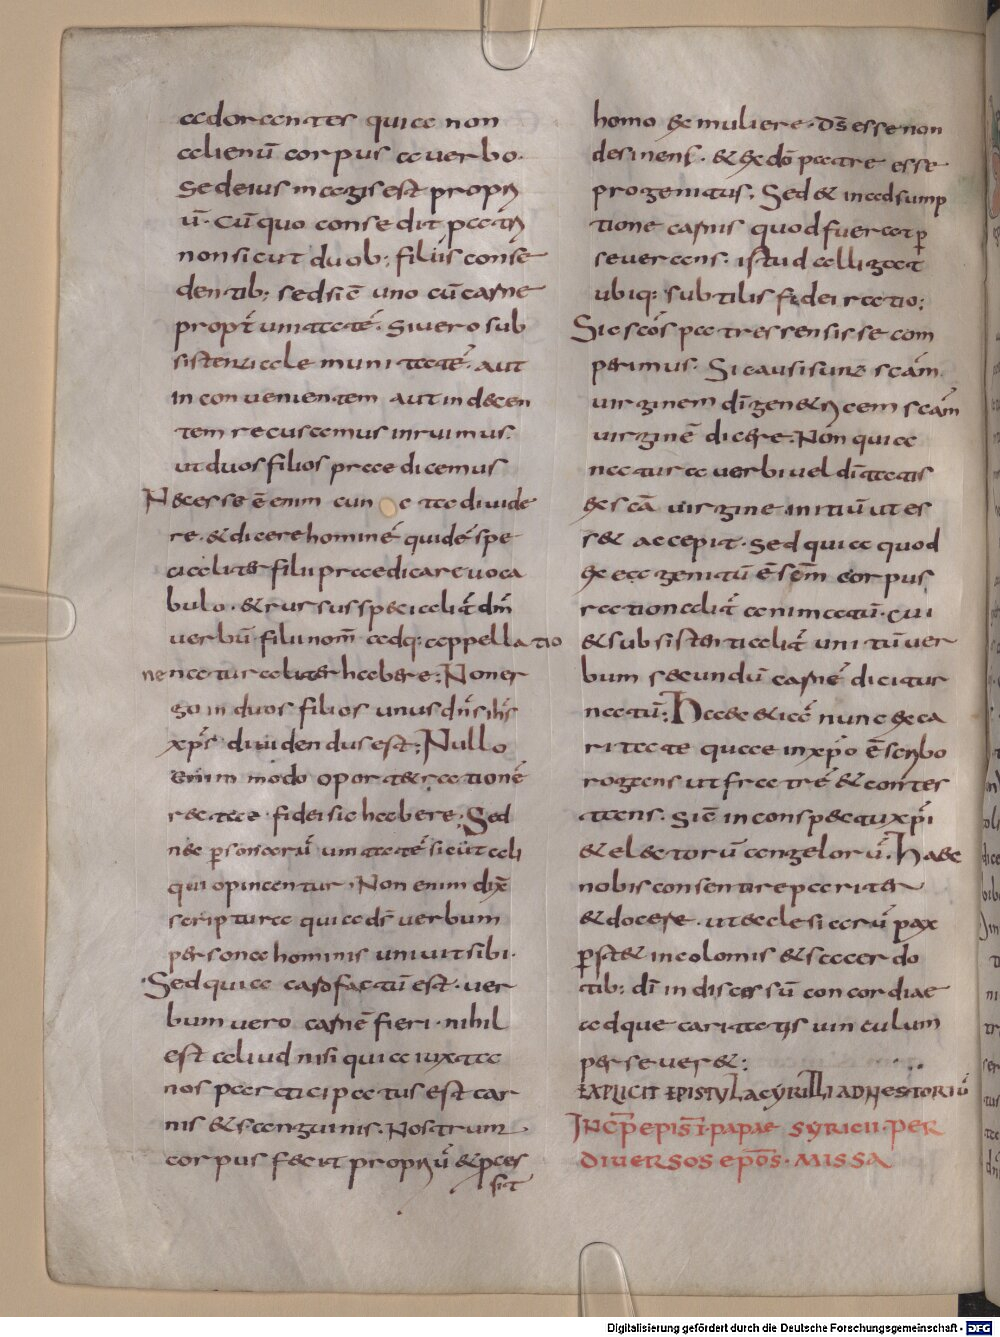 adorantes quia non
alienū corpus a uerbo.
sed eius magis est propri
ū. Cū quo consedit patri
non sicut duob; filiis conse
dentib; sed sic uno cū carne
propt̄ unitatē. Si uero sub
sistentiale munitatē. aut
inconuenientem aut indecen
tem recusamus inruimus.
ut duos filios praedicemus
Necesse ē enim cunc ta diuide
re. & dicere hominē quidē spe
cialiter filii praedicare uoca
bulo. & rursus specialit̄ dm̄
uerbū filii nom̄ adq; appellatio
ne naturaliter habere; Non er
go in duos filios unus dn̄s ih̄s
xp̄s diuidendus est; Nullo
enim modo oporter& rationē
rectae fidei sic habere. Sed
nec p̄sonarū unitatē sicut ali
qui opinantur. Non enim dix̄
scriptura quia dī uerbum
persona hominis uniuit sibi.
Sed quia caro factū est. uer
bum uero carnē fieri. nihil
est aliud nisi quia iuxta
nos participatus est car
nis & sanguinis. Nostrum
corpus fecit propriū & p̄ces
sit
homo ex muliere. Ds̄ esse non
desinens. & ex dō patre esse
progenitus. Sed & in adsump
tione carnis quod fuerat p̄
seuerans. istud alligat
ubiq; subtilis fidei ratio;
Sic scōs patres sensisse com
perimus. Sic ausi sunt scām
uirginem dī genetricem scām
uirginē dicere. Non quia
natura uerbi uel dītatis
ex scā uirgine initiū ut es
s& accepit. sed quia quod
ex ea genitū ē scm̄ corpus
rationalit̄ animatū. cui
& subsistentialit̄ unitū uer
bum secundū carnē dicitur
natū; Haec & iā nunc ex ca
ritate quae in xp̄o ē scribo
rogans ut fratrē & contes
tans. sic in conspectu xp̄i
& electorū angelorū. Haec
nobis consentire pariter
& docere. ut ecclesiarū pax
p̄st& incolomis & sacerdo
tib; dī in discessū concordiae
adque caritatis uinculum
perseuer&;
EXPLICIT EPISTULA CYRILLI AD NESTORIŪ
INCP̄ EPIST̄ PAPAE SYRICII PER
DIUERSOS EPO͞S. MISSA
Digitalisierung gefördert durch die Deutsche Forschungsgemeinschaft - DFG